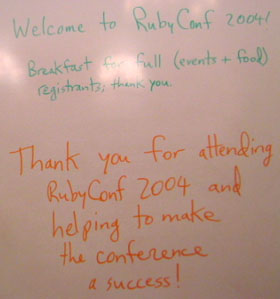 Welcome to RubyConf 2004!
Breakfast for full (events + food)
registrants, thank you.
Thank you for attending
RubyConf 2004 and
helping to make
the conference
a success!